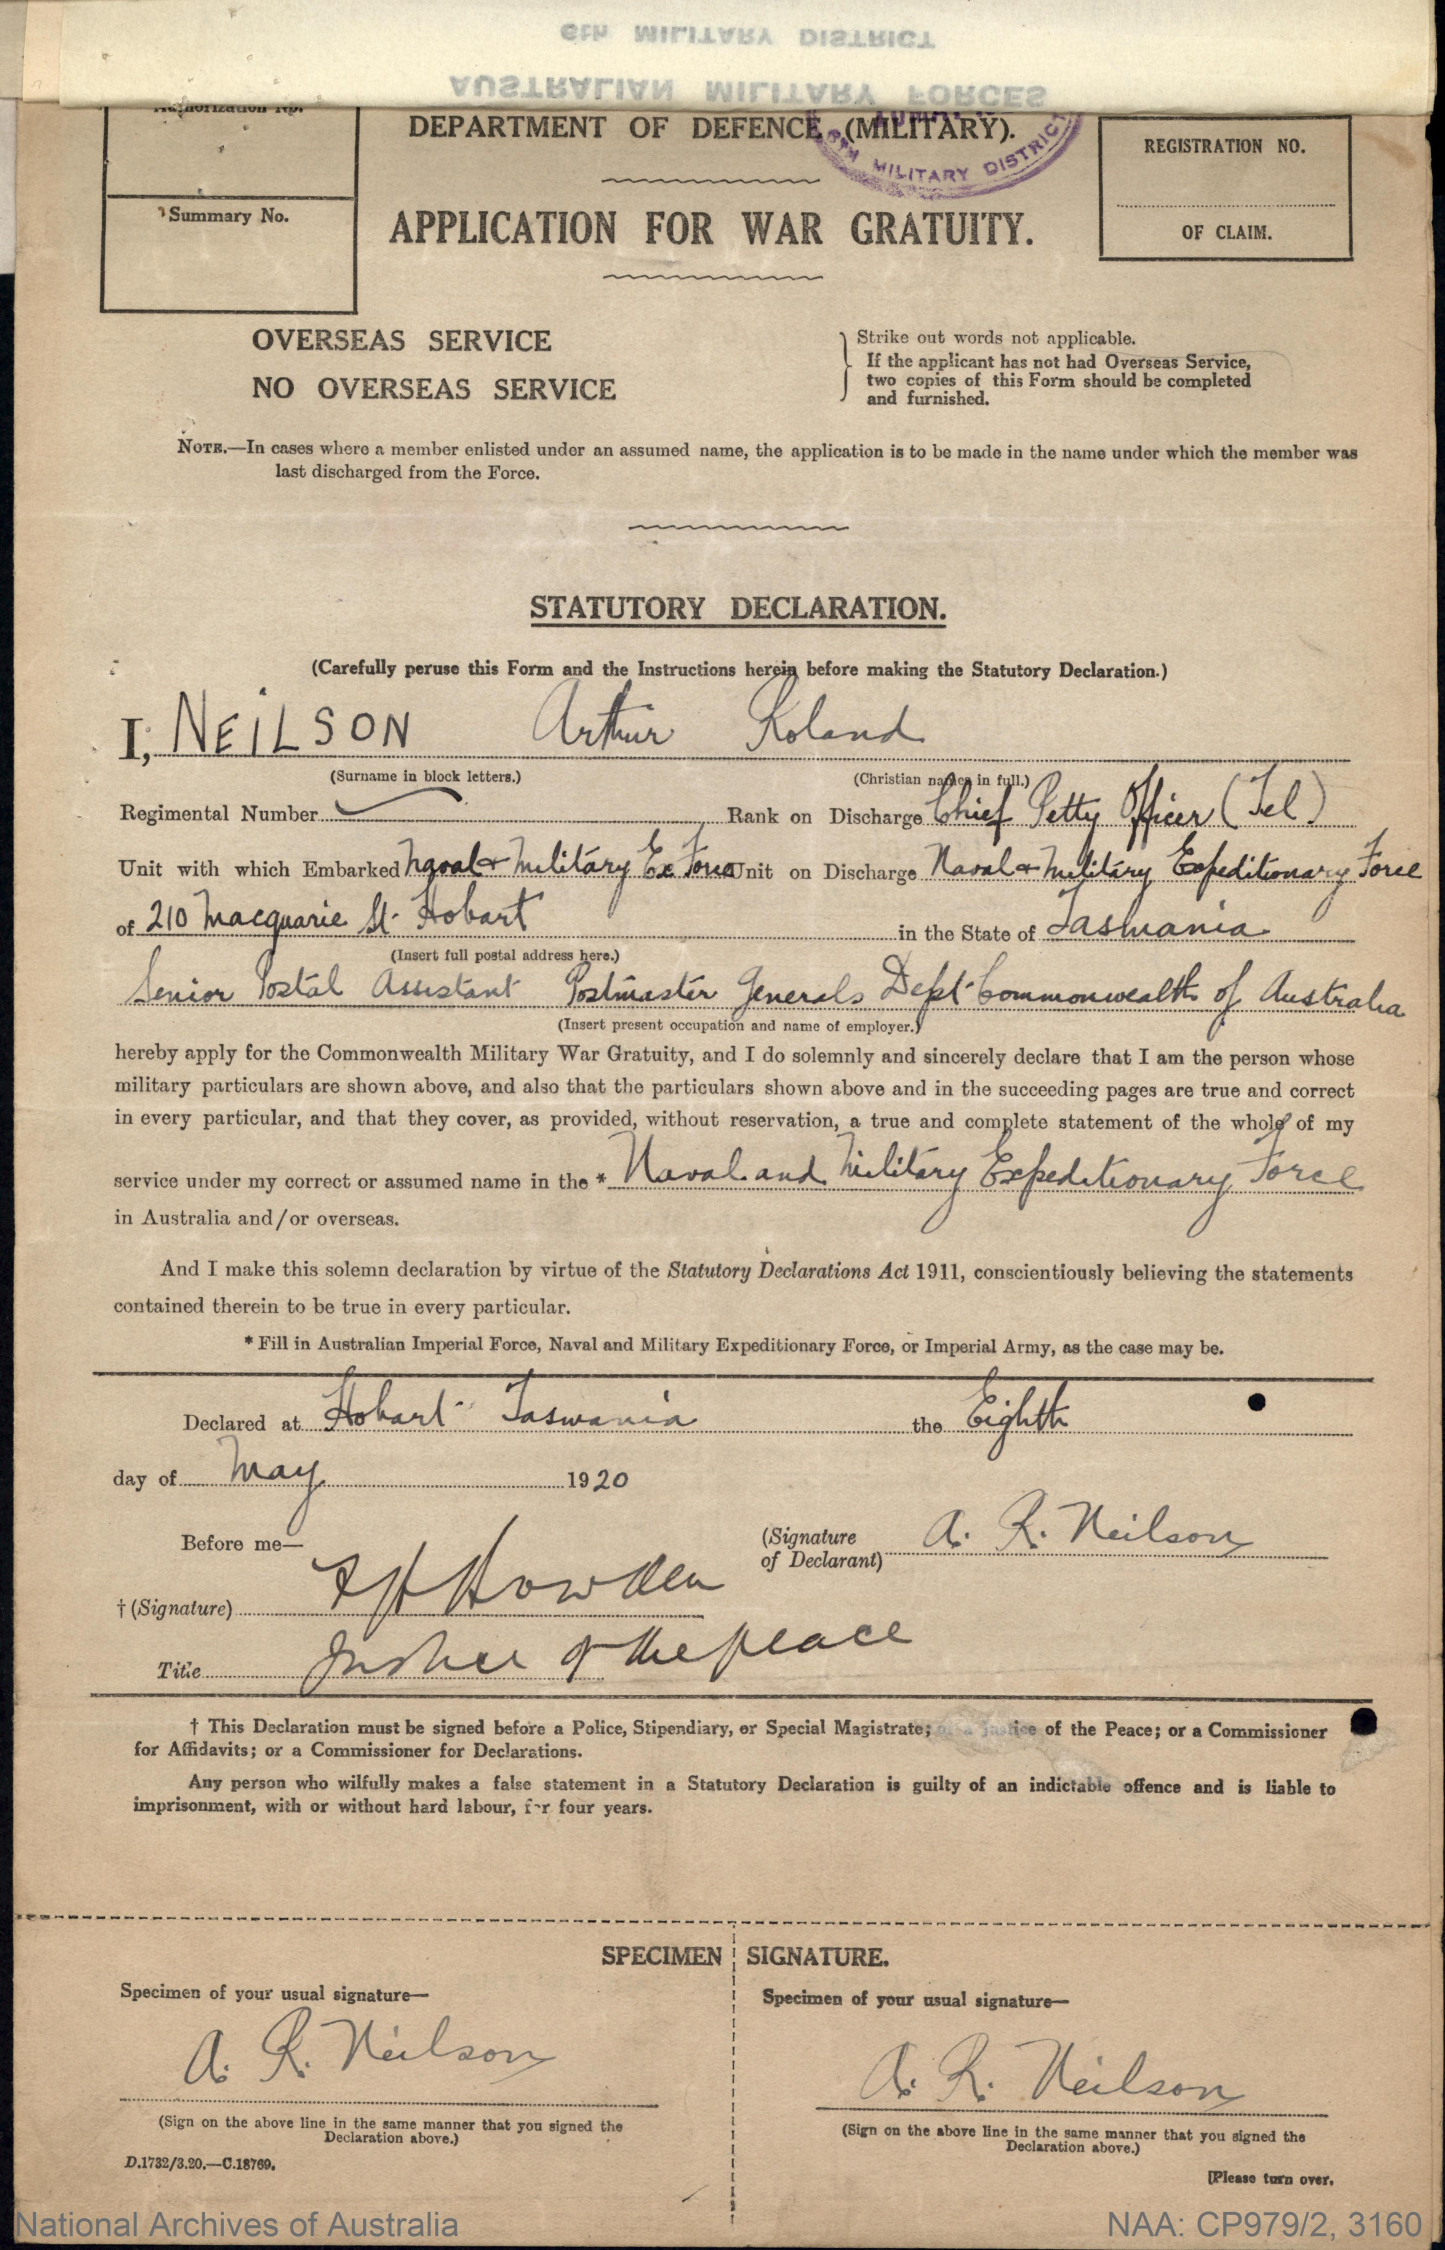 6th MILITARY DISTRICT
AUSTRALIAN MILITARY FORCES
Authorization No.
Summary No.
DEPARTMENT OF DEFENCE (MILITARY).
6TH MILITARY DISTRICT
APPLICATION FOR WAR GRATUITY.
REGISTRATION NO.
OF CLAIM.
OVERSEAS SERVICE
NO OVERSEAS SERVICE
Strike out words not applicable.
If the applicant has not had Overseas Service,
two copies of this Form should be completed
and furnished.
NOTE.—In cases where a member enlisted under an assumed name, the application is to be made in the name under which the member was
last discharged from the Force.
STATUTORY DECLARATION.
(Carefully peruse this Form and the Instructions herein before making the Statutory Declaration.)
I, NEILSON Arthur Roland
(Surname in block letters.) (Christian names in full.)
Regimental Number Rank on Discharge Chief Petty Officer (Tel)
Unit with which Embarked Naval & Military Ex Force Unit on Discharge Naval & Military Expeditionary Force
of 210 Macquarie St. Hobart in the State of Tasmania
(Insert full postal address here.)
Senior Postal Assistant Postmaster Generals Dept Commonwealth of Australia
(Insert present occupation and name of employer.)
hereby apply for the Commonwealth Military War Gratuity, and I do solemnly and sincerely declare that I am the person whose
military particulars are shown above, and also that the particulars shown above and in the succeeding pages are true and correct
in every particular, and that they cover, as provided, without reservation, a true and complete statement of the whole of my
service under my correct or assumed name in the * Naval and Military Expeditionary Force
in Australia and/or overseas.
And I make this solemn declaration by virtue of the Statutory Declarations Act 1911, conscientiously believing the statements
contained therein to be true in every particular.
* Fill in Australian Imperial Force, Naval and Military Expeditionary Force, or Imperial Army, as the case may be.
Declared at Hobart Tasmania the Eighth
day of May 1920
Before me—
(Signature of Declarant) A. R. Neilson
† (Signature) F H Howden
Title Justice of the peace
† This Declaration must be signed before a Police, Stipendiary, or Special Magistrate; or a Justice of the Peace; or a Commissioner
for Affidavits; or a Commissioner for Declarations.
Any person who wilfully makes a false statement in a Statutory Declaration is guilty of an indictable offence and is liable to
imprisonment, with or without hard labour, for four years.
SPECIMEN SIGNATURE.
Specimen of your usual signature—
A. R. Neilson
(Sign on the above line in the same manner that you signed the
Declaration above.)
D.1732/3.20.—C.18769.
Specimen of your usual signature—
A. R. Neilson
(Sign on the above line in the same manner that you signed the
Declaration above.)
[Please turn over.
National Archives of Australia
NAA: CP979/2, 3160